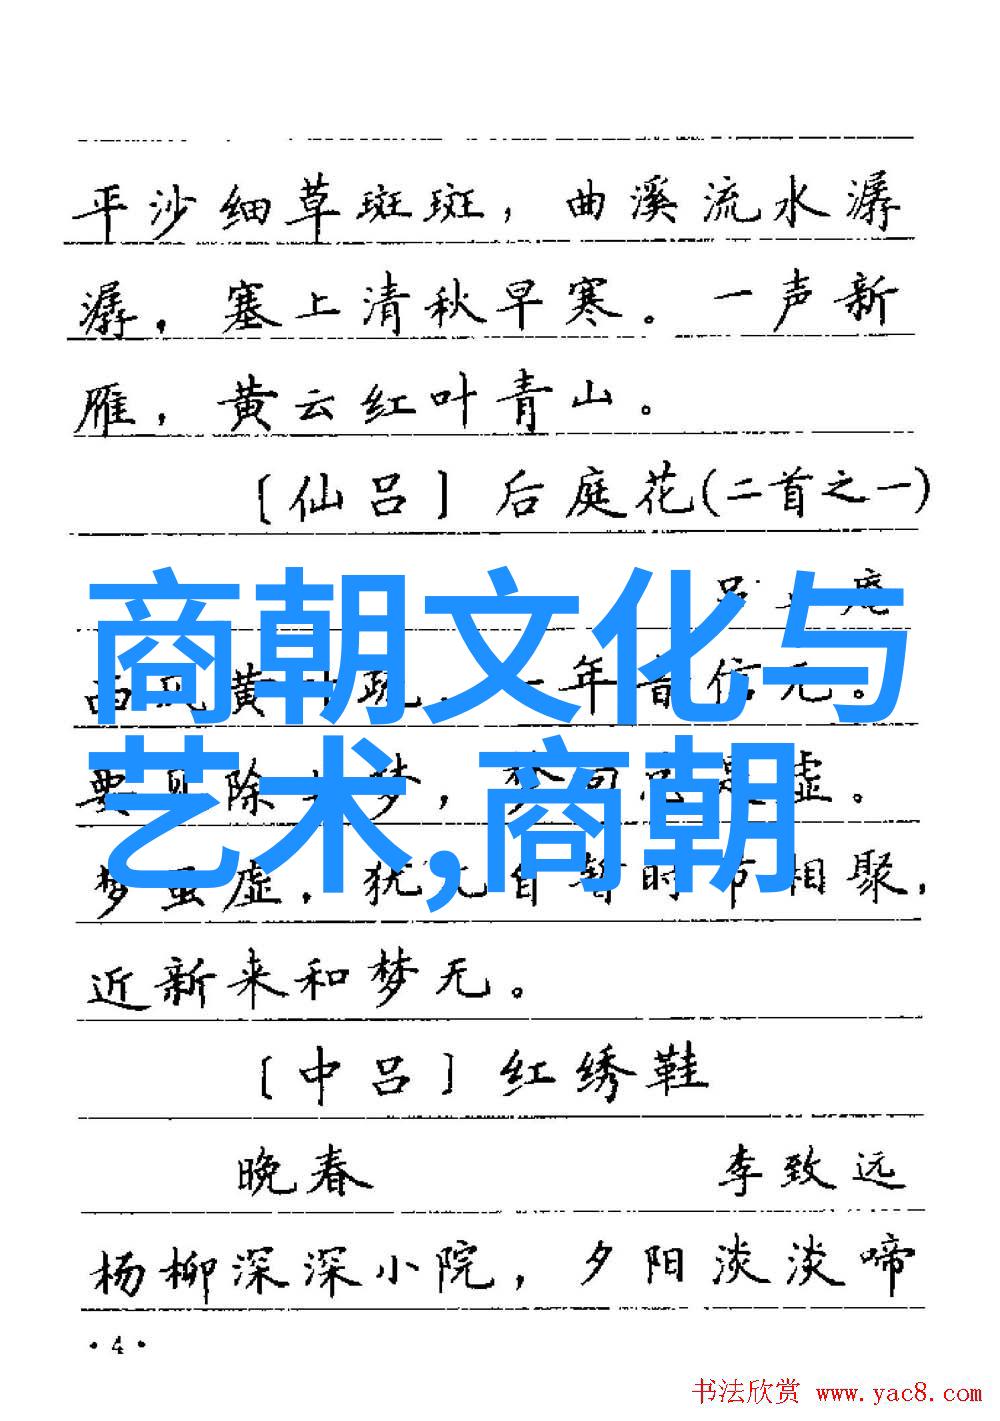 平沙细草斑斑，曲溪流水潺
潺，塞上清秋早寒。一声新
雁，黄云红叶青山。
〔仙吕〕后庭花(二首之一)
吕 庵
商朝文化与
西风黄 疏，一年音信无。
艺术,商朝
要见除 梦，梦回 是虚。
梦虽虚，犹兀自暂时节相聚，
近新来和梦无。
〔中吕〕红绣鞋
晚春 李致远
杨柳深深小院，夕阳淡淡啼
·4·
书法欣赏 www.yac8.com